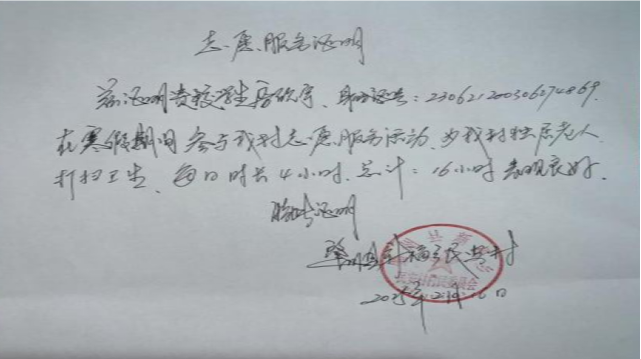 志愿服务证明
兹证明贵校学生 身份证号：230621200306074869.
在寒假期间参与我村志愿服务活动，为我村独居老人
打扫卫生，每日时长4小时，总计：16小时 表现良好.
特此证明
村
2025年2月16日